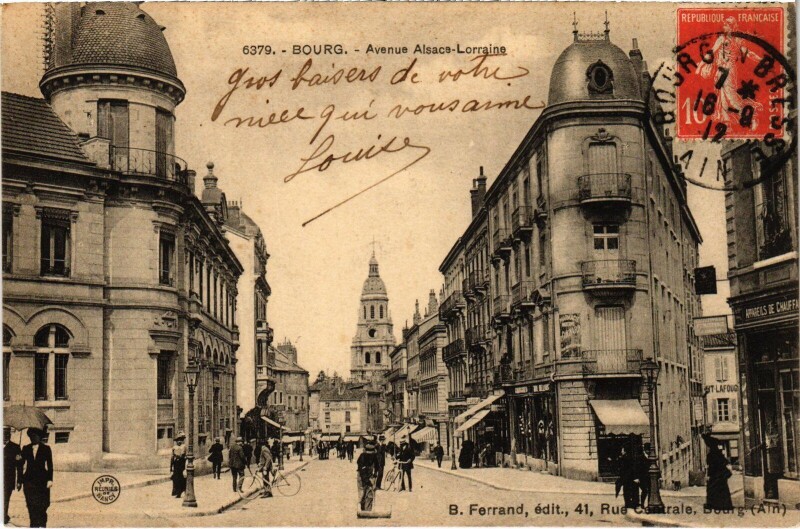 6379. - BOURG. - Avenue Alsace-Lorraine
Gros baisers de votre
nièce qui vous aime
Louise
REPUBLIQUE FRANÇAISE
10
BOURG EN BRESSE
7 *
18-8
12
AIN
APPAREILS DE CHAUFFA
UT-LAFOUG
IMPR.
RÉUNIES DE
NANCY
B. Ferrand, édit., 41, Rue Centrale, Bourg (Ain)